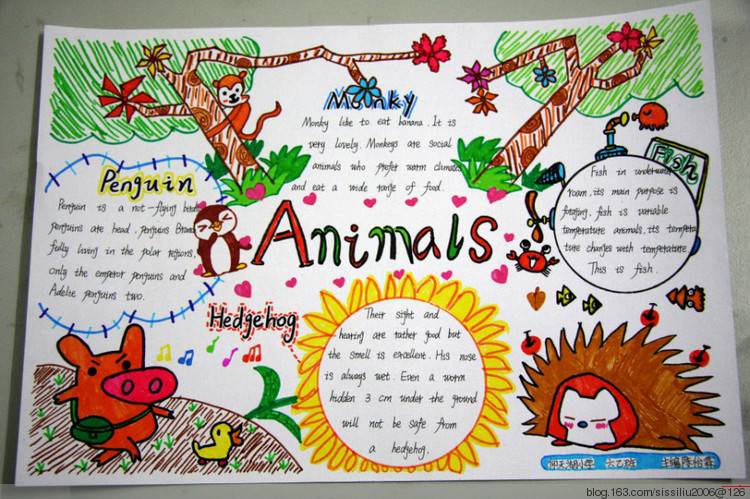 Monky
Monky like to eat banana. It is
very lovely. Monkeys are social
animals who prefer warm climate
and eat a wide range of food.
Penguin
Penguin is a not-flying bird
penguins are head, penguins Brund
fully living in the polar regions,
only the emperor penguins and
Adelie penguins two.
Fish
Fish in underwater
room, its main purpose is
fishing. fish is variable
temperature animals, its tempera
ture changes with temperature.
This is fish.
Animals
Hedgehog
Their sight and
hearing are rather good but
the smell is excellent. His nose
is always wet. Even a worm
hidden 3 cm under the ground
will not be safe from
a hedgehog.
小学
blog.163.com/sissiliu2006@126